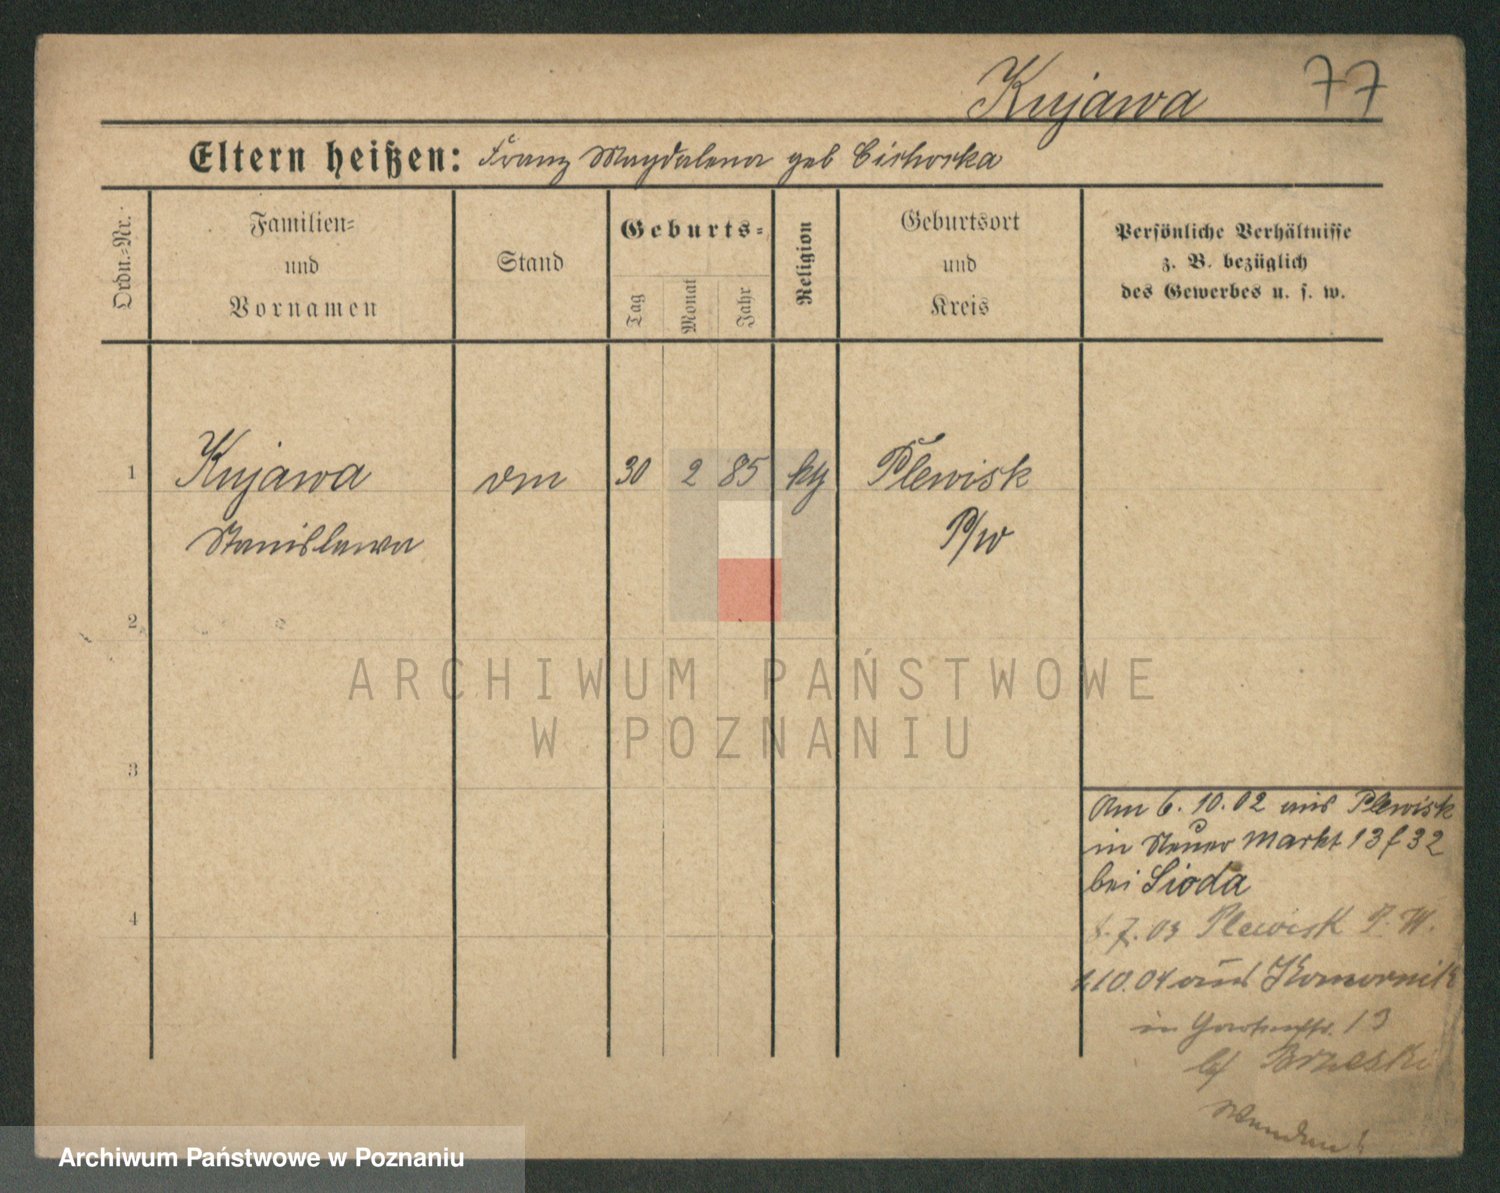 Kujawa 77
Eltern heißen: Franz Magdalena geb Cichorka
Ordn.-Nr.
Familien-
und
Vornamen
Stand
Geburts-
Tag
Monat
Jahr
Religion
Geburtsort
und
Kreis
Persönliche Verhältnisse
z. B. bezüglich
des Gewerbes u. s. w.
1 Kujawa 30 2 85 Plewisk
Stanislawa P/W
2
3
4
Am 6.10.02 aus Plewisk
in Neuer Markt 13 f 32
bei Sioda
7.03 Plewisk P. W.
1.10.04 aus Komornik
in Gartenstr. 13
bei Brzeski
Wenden!
ARCHIWUM PAŃSTWOWE
W POZNANIU
Archiwum Państwowe w Poznaniu